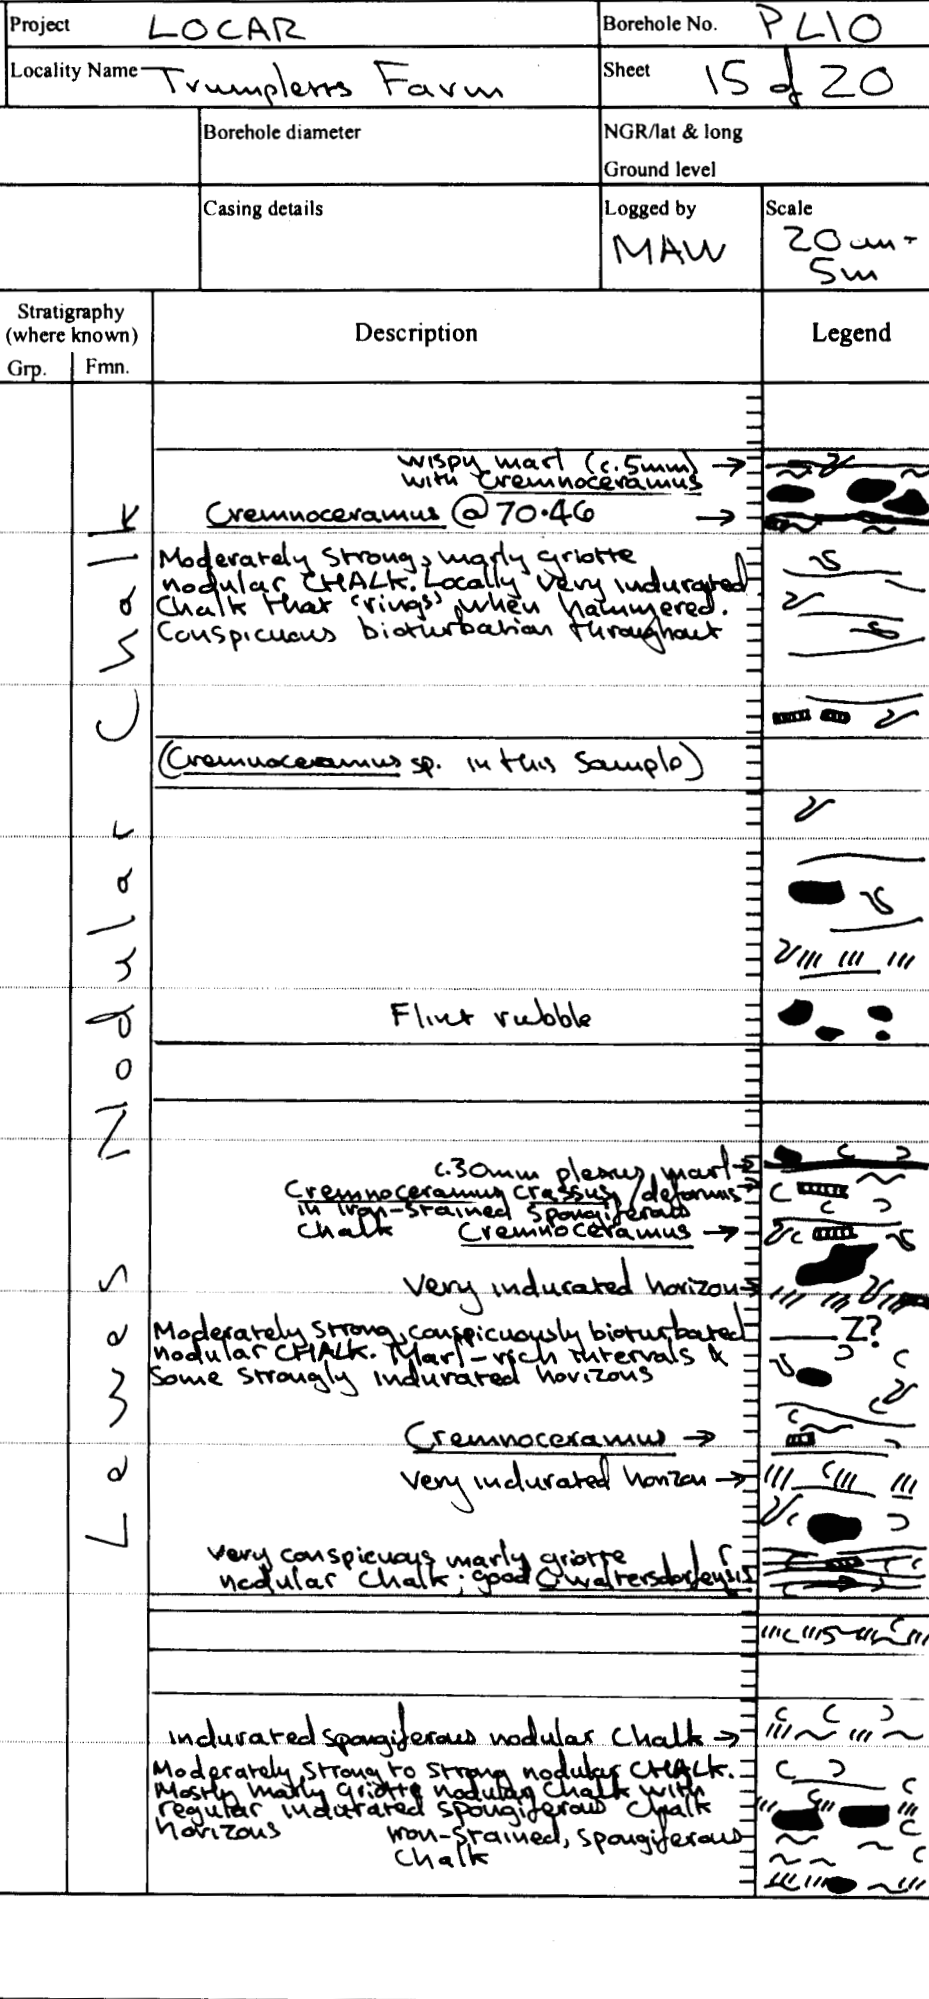 Project LOCAR Borehole No. PL10
Locality Name Trumpletts Farm Sheet 15 of 20
Borehole diameter NGR/lat & long
Ground level
Casing details Logged by Scale
MAW 20cm = 5m
Stratigraphy
(where known) Description Legend
Grp. Fmn.
Lewes Nodular Chalk
wispy marl (c. 5mm) →
with Cremnoceramus
Cremnoceramus @ 70.46 →
Moderately strong, marly griotte
nodular CHALK. Locally very indurated
Chalk that "rings" when hammered.
Conspicuous bioturbation throughout
(Cremnoceramus sp. in this sample)
Flint rubble
c.30mm plexus marl →
Cremnoceramus crassus/deformis
in iron-stained spongiferous
Chalk Cremnoceramus →
Very indurated horizon →
Moderately strong, conspicuously bioturbated
nodular CHALK. Marl-rich intervals &
Some strongly indurated horizons
Z?
Cremnoceramus →
Very indurated horizon →
Very conspicuous marly griotte
nodular chalk; good C. waltersdorfensis
Indurated spongiferous nodular Chalk →
Moderately strong to strong nodular CHALK.
Mostly marly griotte nodular chalk with
regular indurated spongiferous chalk
horizons iron-stained, spongiferous
Chalk